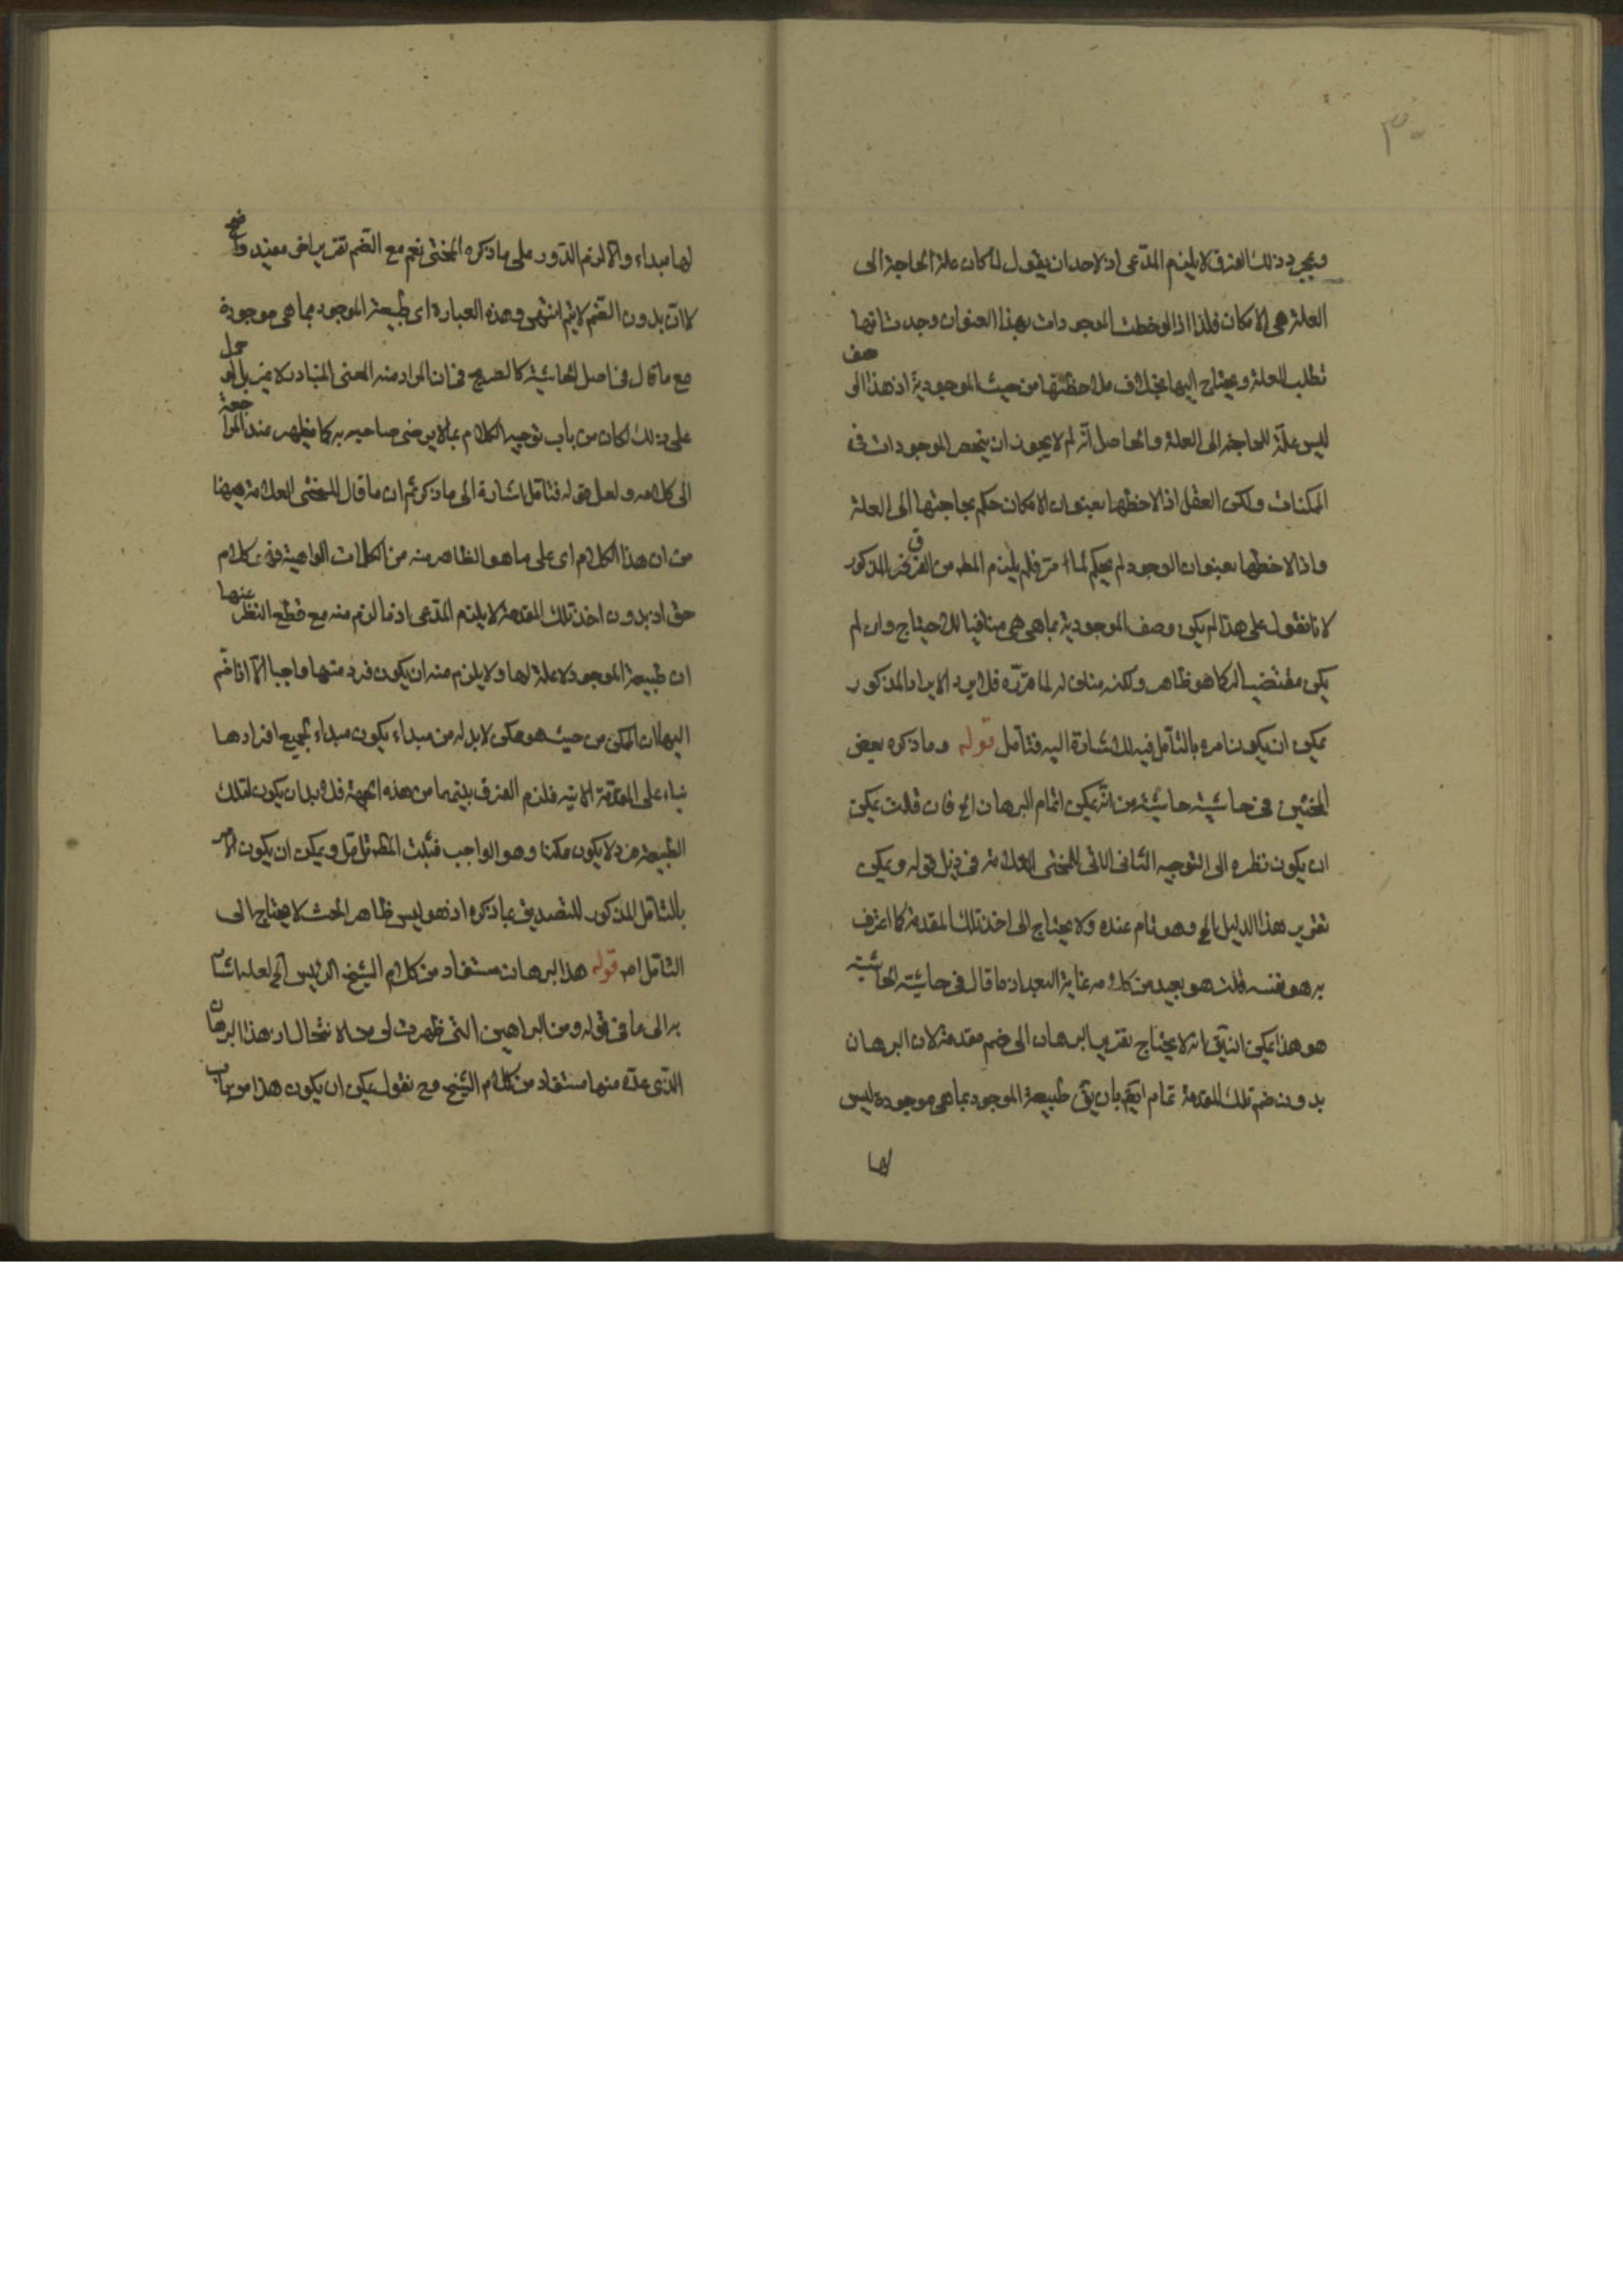 ٣٠
وبمجرد ذلك الفرق لا يلزم المدّعى اذ لاحد ان يقول لما كان علة الحاجة الى
العلة هى الامكان فلذا اذا لوحظت الموجودات بهذا العنوان وجدت انها
تطلب العلة ويحتاج اليها بخلاف ملاحظتها من حيث الموجودية اذ هذا الوصف
ليس علّة للحاجة الى العلة والحاصل انّه لم لا يجوز ان ينحصر الموجودات فى
الممكنات ولكن العقل اذا لاحظها بعنوان الامكان حكم بحاجتها الى العلة
واذا لاحظها بعنوان الوجود لم يحكم لما مرّ فلم يلزم المط من الفرق المذكور
لانا نقول على هذا لم يكن وصف الموجودية بما هى هى منافيا للاحتياج وان لم
يكن مقتضيا له كما هو ظاهر ولكنه مناف له لما مرّ فلا يرد الايراد المذكور
يمكن ان يكون امره بالتأمل فيه للاشارة اليه فتأمل قوله وما ذكره بعض
المحشين فى حاشية حاشيته من انّه يمكن اتمام البرهان الخ فان قلت يمكن
ان يكون نظره الى التوجيه الثانى الاتى للمحشى العلامة فى ذيل قوله ويمكن
تقرير هذا الدليل الخ وهو تام عنده ولا يحتاج الى اخذ تلك المقدمة كما اعترف
به هو نفسه قلت هو بعيد من كلامه غاية البعد اذ ما قال فى حاشية الحاشية
هو هذا يمكن ان يق انه لا يحتاج تقرير البرهان الى ضم مقدمة لان البرهان
بدون ضم تلك المقدمة تمام ايضم بان يق طبيعة الموجود بما هى موجودة ليس
لها
لها مبداء والا لزم الدّور على ما ذكره المحشى نعم مع الضّم تقرير اخر مفيد واضح
لا انّ بدون الضّم لا يتم انتهى وهذه العبارة اى طبيعة الموجود بما هى موجودة
مع ما قال فى اصل الحاشية كالصريح فى ان المراد منه المعنى المتبادر لا غير بل لو حمل
على ذلك لكان من باب توجيه الكلام بما لا يرضى صاحبه به كما يظهر عند المراجعة
الى كلامه ولعل قوله فتأمل اشارة الى ما ذكر ثم ان ما قال المحشى العلامة ههنا
من ان هذا الكلام اى على ما هو الظاهر منه من الكلمات الواهية فهو كلام
حق اذ بدون اخذ تلك المقدمة لا يلزم المدّعى اذ ما لزم منه مع قطع النظر عنها
ان طبيعة الموجود لا علة لها ولا يلزم منه ان يكون فرد منها واجبا الّا اذا ضّم
اليها ان الممكن من حيث هو ممكن لا بد له من مبداء يكون مبداء لجميع افرادها
بناء على المقدّمة الاتية فلزم الفرق بينهما من هذه الجهة فلا بد ان يكون لتلك
الطبيعة فرد لا يكون ممكنا وهو الواجب فثبت المط تأمل ويمكن ان يكون الامر
بالتأمل المذكور للتصديق بما ذكره اذ هو ليس ظاهر البحث لا يحتاج الى
التأمل اه قوله هذا البرهان مستفاد من كلام الشيخ الرئيس الخ لعله اشار
به الى ما فى قوله ومن البراهين التى ظهرت لى محالا نتحال اذ هذا البرهان
الذى عدّه منها مستفاد من كلام الشيخ وح نقول يمكن ان يكون هذا من باب